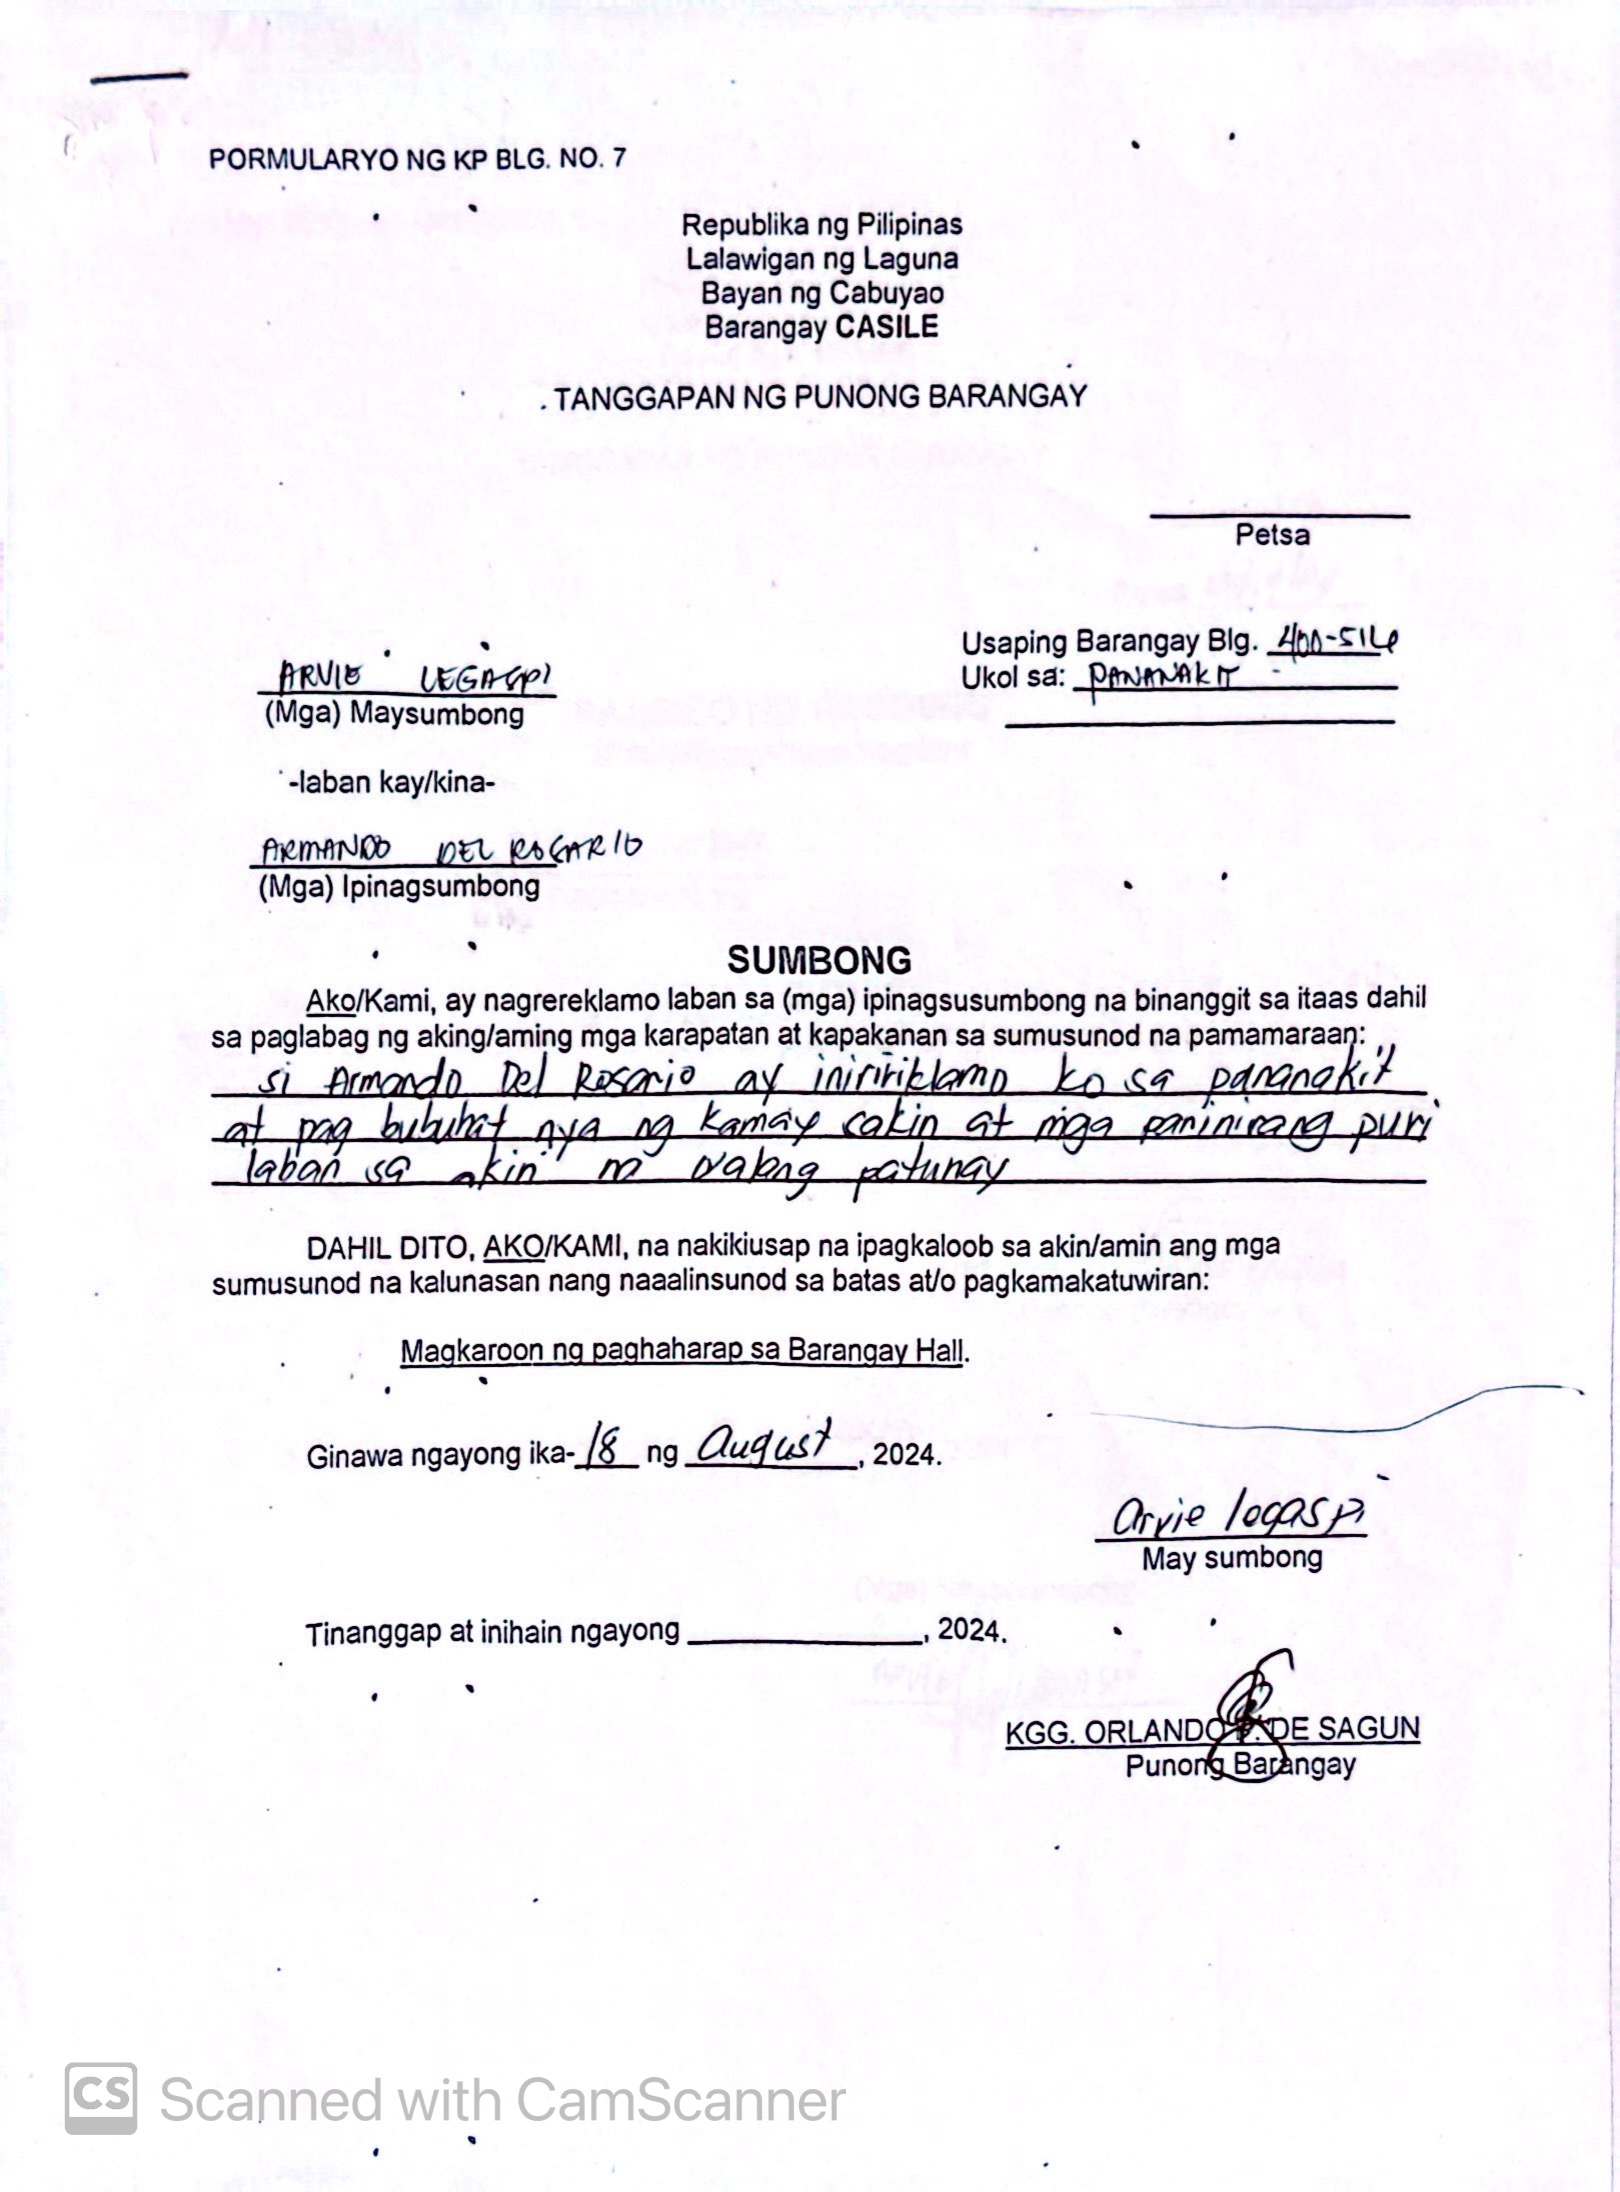 PORMULARYO NG KP BLG. NO. 7
Republika ng Pilipinas
Lalawigan ng Laguna
Bayan ng Cabuyao
Barangay CASILE
TANGGAPAN NG PUNONG BARANGAY
Petsa
Usaping Barangay Blg.
Ukol sa: PANANAKIT
ARVIE LEGASPI
(Mga) Maysumbong
-laban kay/kina-
ARMANDO DEL ROSARIO
(Mga) Ipinagsumbong
SUMBONG
Ako/Kami, ay nagrereklamo laban sa (mga) ipinagsusumbong na binanggit sa itaas dahil
sa paglabag ng aking/aming mga karapatan at kapakanan sa sumusunod na pamamaraan:
si Armando Del Rosario ay iniririklamo ko sa pananakit
at pag bubuhat nya ng kamay sakin at mga paninirang puri
laban sa akin na walang patunay
DAHIL DITO, AKO/KAMI, na nakikiusap na ipagkaloob sa akin/amin ang mga
sumusunod na kalunasan nang naaalinsunod sa batas at/o pagkamakatuwiran:
Magkaroon ng paghaharap sa Barangay Hall.
Ginawa ngayong ika-18 ng August, 2024.
Arvie legaspi
May sumbong
Tinanggap at inihain ngayong ______________, 2024.
KGG. ORLANDO DE SAGUN
Punong Barangay
CS Scanned with CamScanner